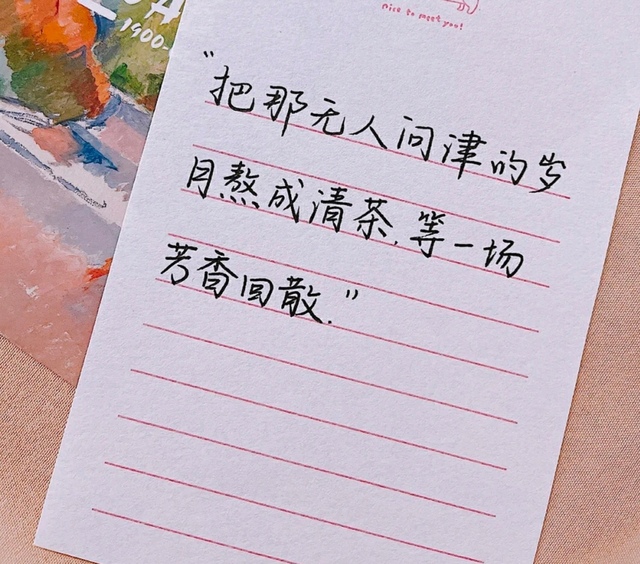 nice to meet you!
1900-
“把那无人问津的岁
月熬成清茶,等一场
芳香回散.”